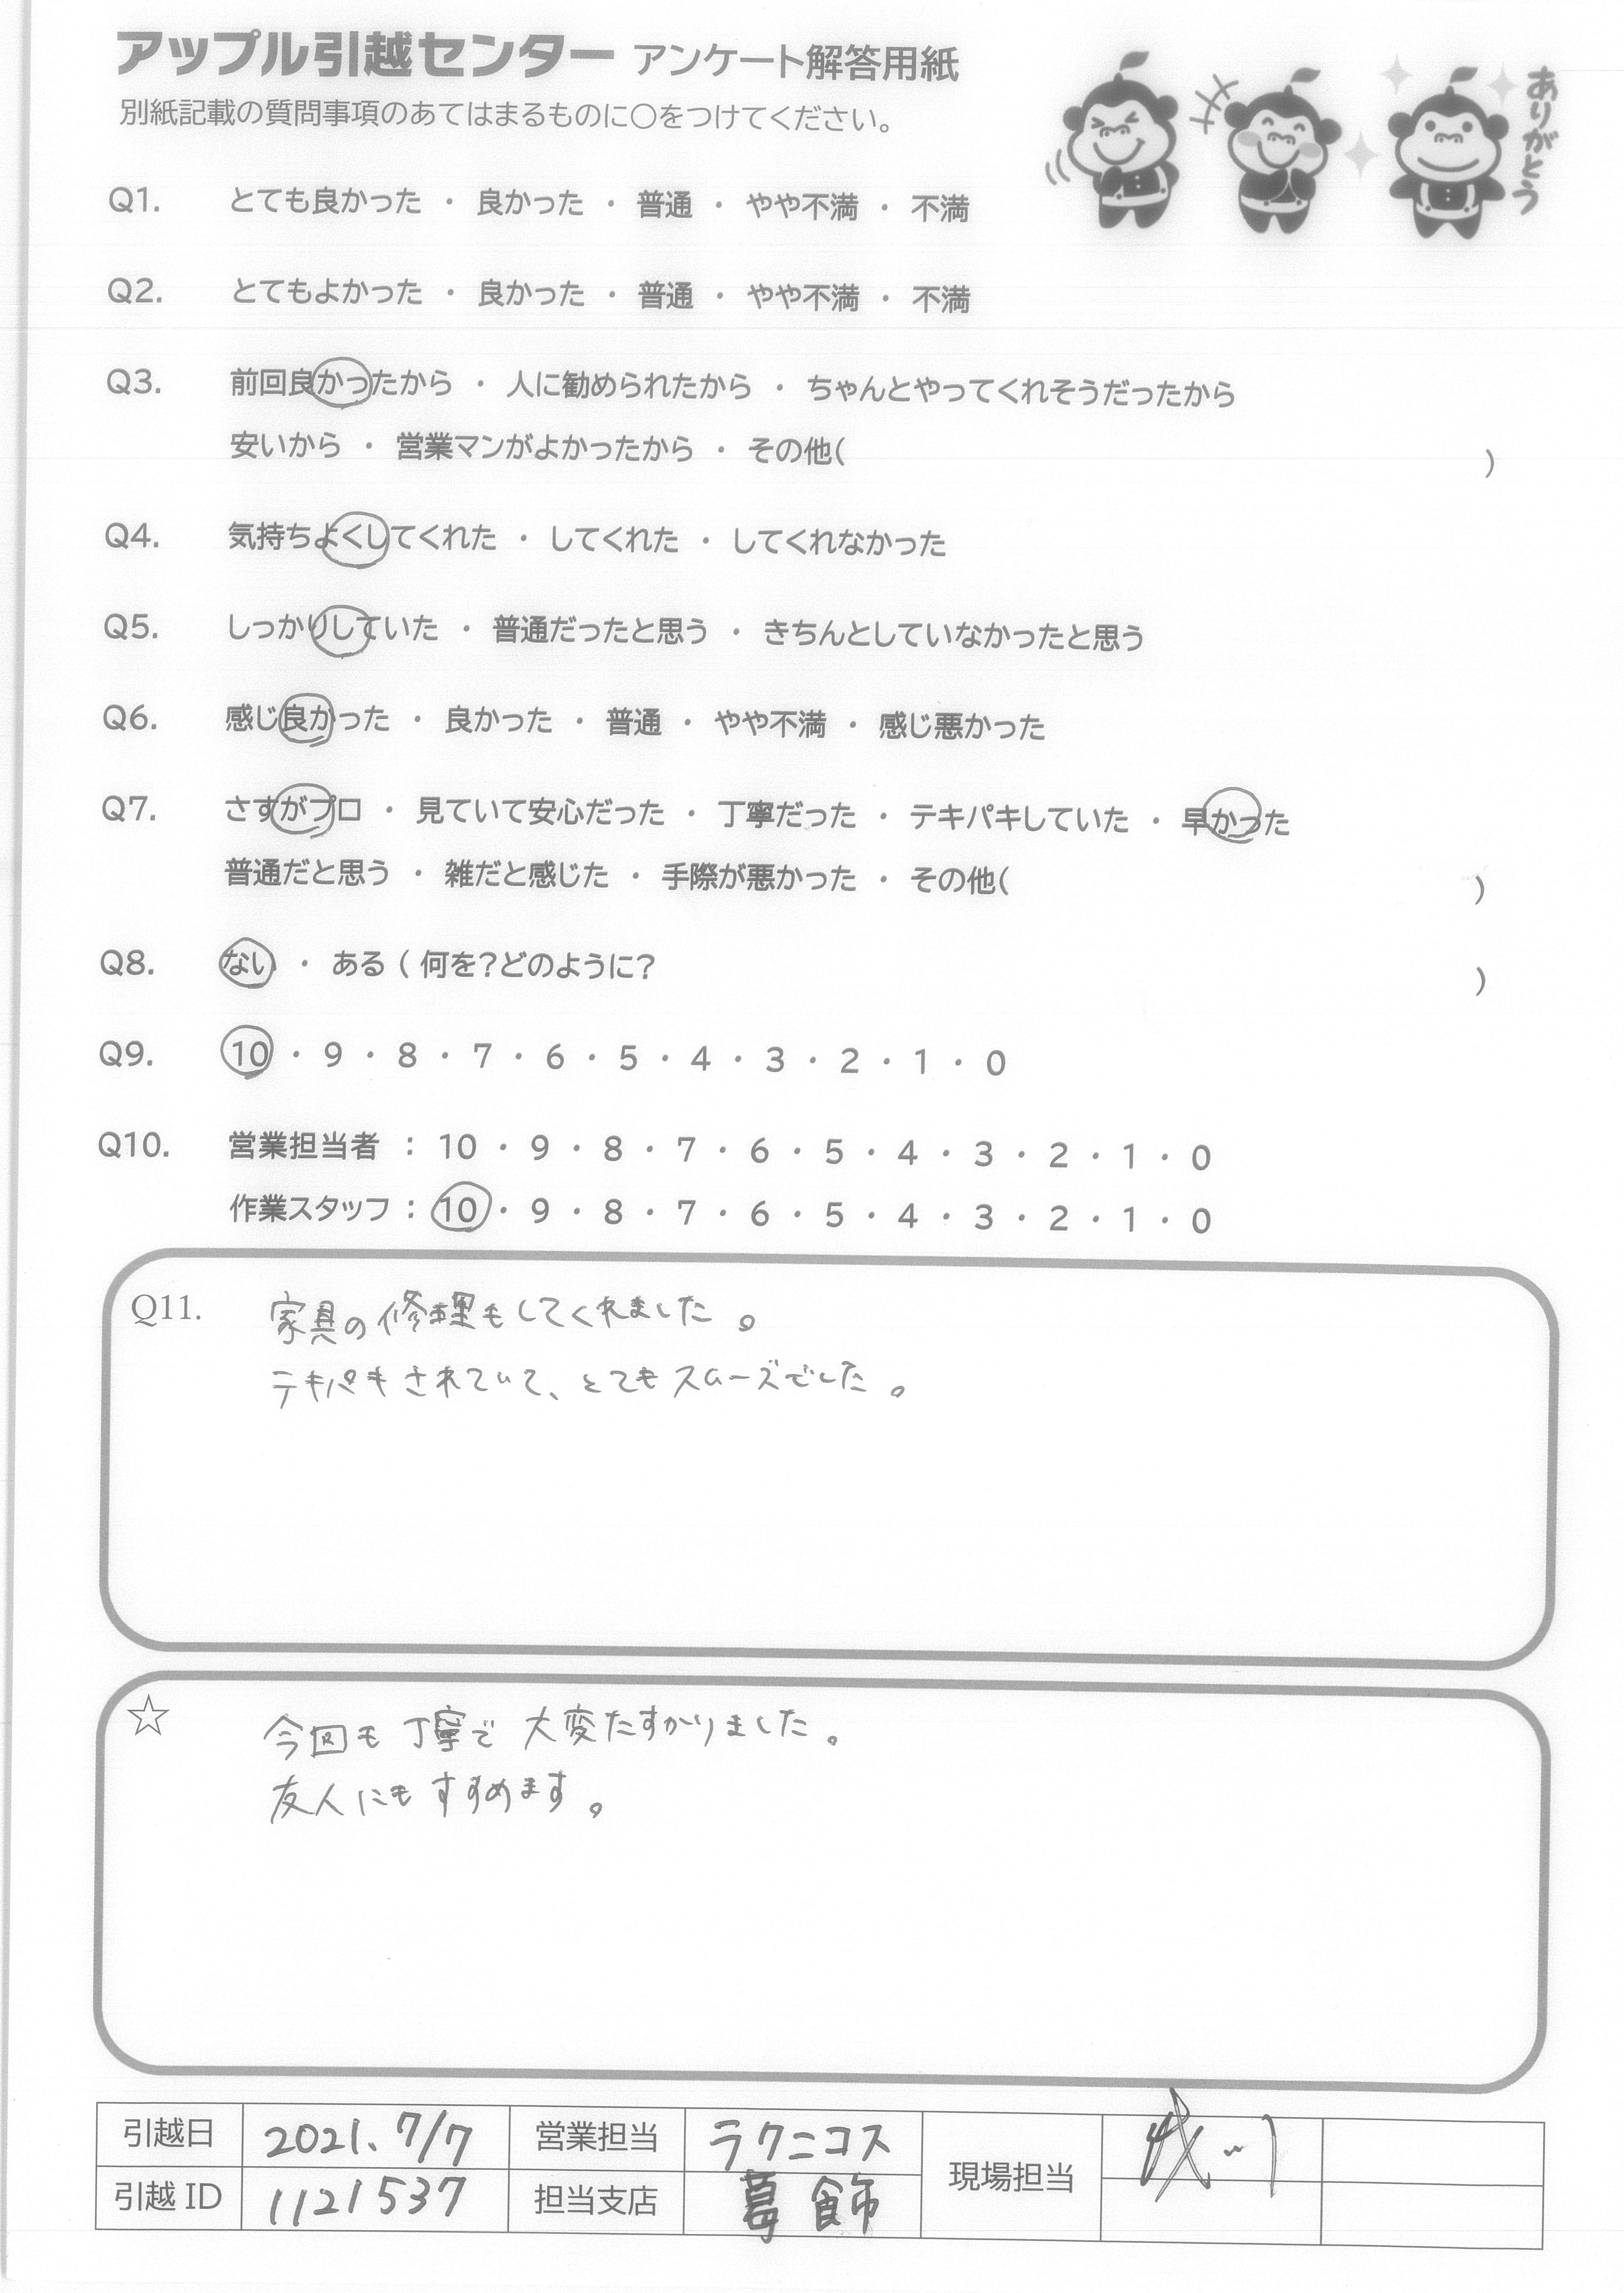 アップル引越センター アンケート解答用紙
別紙記載の質問事項のあてはまるものに○をつけてください。
ありがとう
Q1. とても良かった ・ 良かった ・ 普通 ・ やや不満 ・ 不満
Q2. とてもよかった ・ 良かった ・ 普通 ・ やや不満 ・ 不満
Q3. 前回良かったから ・ 人に勧められたから ・ ちゃんとやってくれそうだったから
安いから ・ 営業マンがよかったから ・ その他( )
Q4. 気持ちよくしてくれた ・ してくれた ・ してくれなかった
Q5. しっかりしていた ・ 普通だったと思う ・ きちんとしていなかったと思う
Q6. 感じ良かった ・ 良かった ・ 普通 ・ やや不満 ・ 感じ悪かった
Q7. さすがプロ ・ 見ていて安心だった ・ 丁寧だった ・ テキパキしていた ・ 早かった
普通だと思う ・ 雑だと感じた ・ 手際が悪かった ・ その他( )
Q8. ない ・ ある ( 何を?どのように? )
Q9. 10 ・ 9 ・ 8 ・ 7 ・ 6 ・ 5 ・ 4 ・ 3 ・ 2 ・ 1 ・ 0
Q10. 営業担当者 : 10 ・ 9 ・ 8 ・ 7 ・ 6 ・ 5 ・ 4 ・ 3 ・ 2 ・ 1 ・ 0
作業スタッフ : 10 ・ 9 ・ 8 ・ 7 ・ 6 ・ 5 ・ 4 ・ 3 ・ 2 ・ 1 ・ 0
Q11. 家具の修理もしてくれました。
テキパキされていて、とてもスムーズでした。
☆ 今回も丁寧で大変たすかりました。
友人にもすすめます。
引越日 2021.7/7 営業担当 ラクニコス 現場担当
引越 ID 1121537 担当支店 葛飾